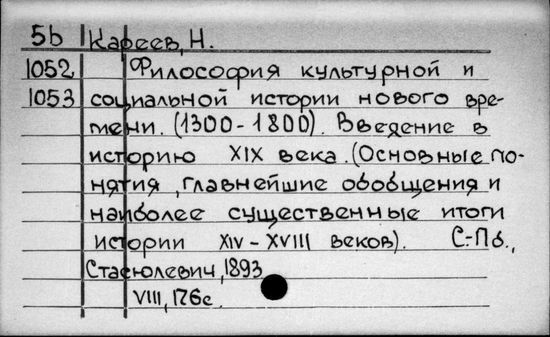 5b Кареев, Н.
1052 Философия культурной и
1053 социальной истории нового вре-
мени. (1300-1800). Введение в
историю XIX века. (Основные по-
нятия, главнейшие обобщения и
наиболее существенные итоги
истории XIV-XVIII веков). С.-Пб.,
Стасюлевич, 1893
VIII, 176с.